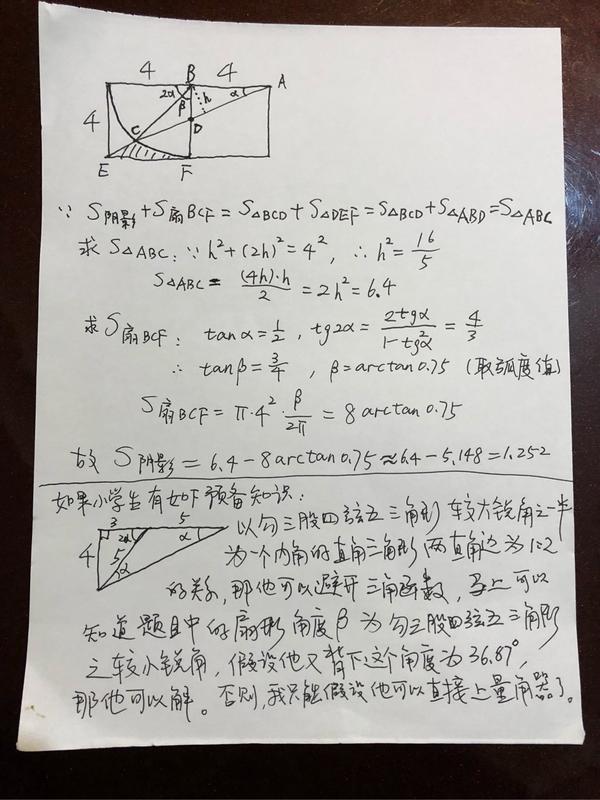 4 4
B
A
2α
β
h
α
4
C
D
E
F
∵ S阴影+S扇BCF = S△BCD + S△DEF = S△BCD + S△ABD = S△ABC
求 S△ABC: ∵ h²+(2h)²=4², ∴ h²=16/5
S△ABC = (4h)·h/2 = 2h² = 6.4
求 S扇BCF: tanα=1/2, tg2α = 2tgα/1-tg²α = 4/3
∴ tanβ=3/4, β=arctan0.75 (取弧度值)
S扇BCF = π·4² β/2π = 8 arctan 0.75
故 S阴影 = 6.4 - 8 arctan 0.75 ≈ 6.4 - 5.148 = 1.252
如果小学生有如下预备知识:
3 5
2α α
4 5
α
以勾三股四弦五三角形较大锐角之一半
为一个内角的直角三角形两直角边为1:2
的关系, 那他可以避开三角函数, 马上可以
知道题目中的扇形角度β为勾三股四弦五三角形
之较小锐角, 假设他又背下这个角度为36.87°,
那他可以解。否则, 我只能假设他可以直接上量角器了。